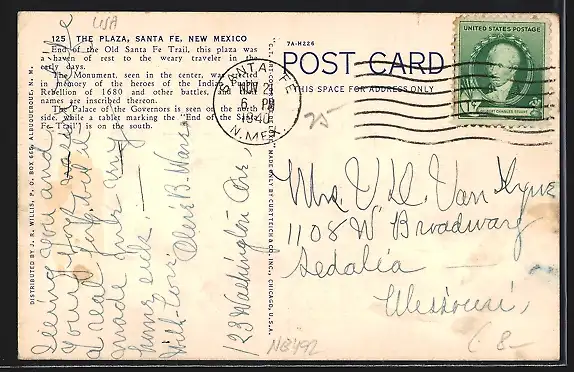 USA
125 THE PLAZA, SANTA FE, NEW MEXICO
End of the Old Santa Fe Trail, this plaza was
a haven of rest to the weary traveler in the
early days.
The Monument, seen in the center, was erected
in memory of the heroes of the Indian Pueblo
Rebellion of 1680 and other battles, and their
names are inscribed thereon.
The Palace of the Governors is seen on the north
side, while a tablet marking the "End of the Santa
Fe Trail") is on the south.
DISTRIBUTED BY J. R. WILLIS, P. O. BOX 665, ALBUQUERQUE, N. M.
Seeing you and
your
a real
made our
home
With Love,
123 Washington Ave,
7A-H226
POST CARD
THIS SPACE FOR ADDRESS ONLY
MADE ONLY BY CURT TEICH & CO., INC., CHICAGO, U.S.A.
SANTA FE
NOV 21
6 PM
1940
N. MEX.
UNITED STATES POSTAGE
GILBERT CHARLES STUART
25
Mrs. V. D. Van Dyne
1108 W. Broadway
Sedalia
Missouri,
NB492